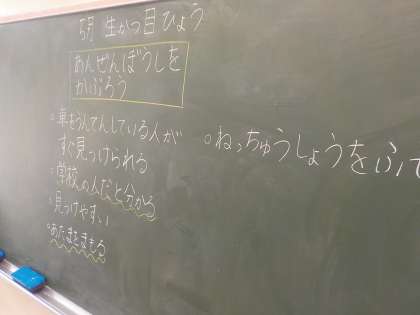 5月 生かつ目ひょう
あんぜんぼうしを
かぶろう
。車をうんてんしている人が
すぐ見つけられる
。学校の人だと分かる
。見つけやすい
。あたまをまもる
。ねっちゅうしょうをふせ